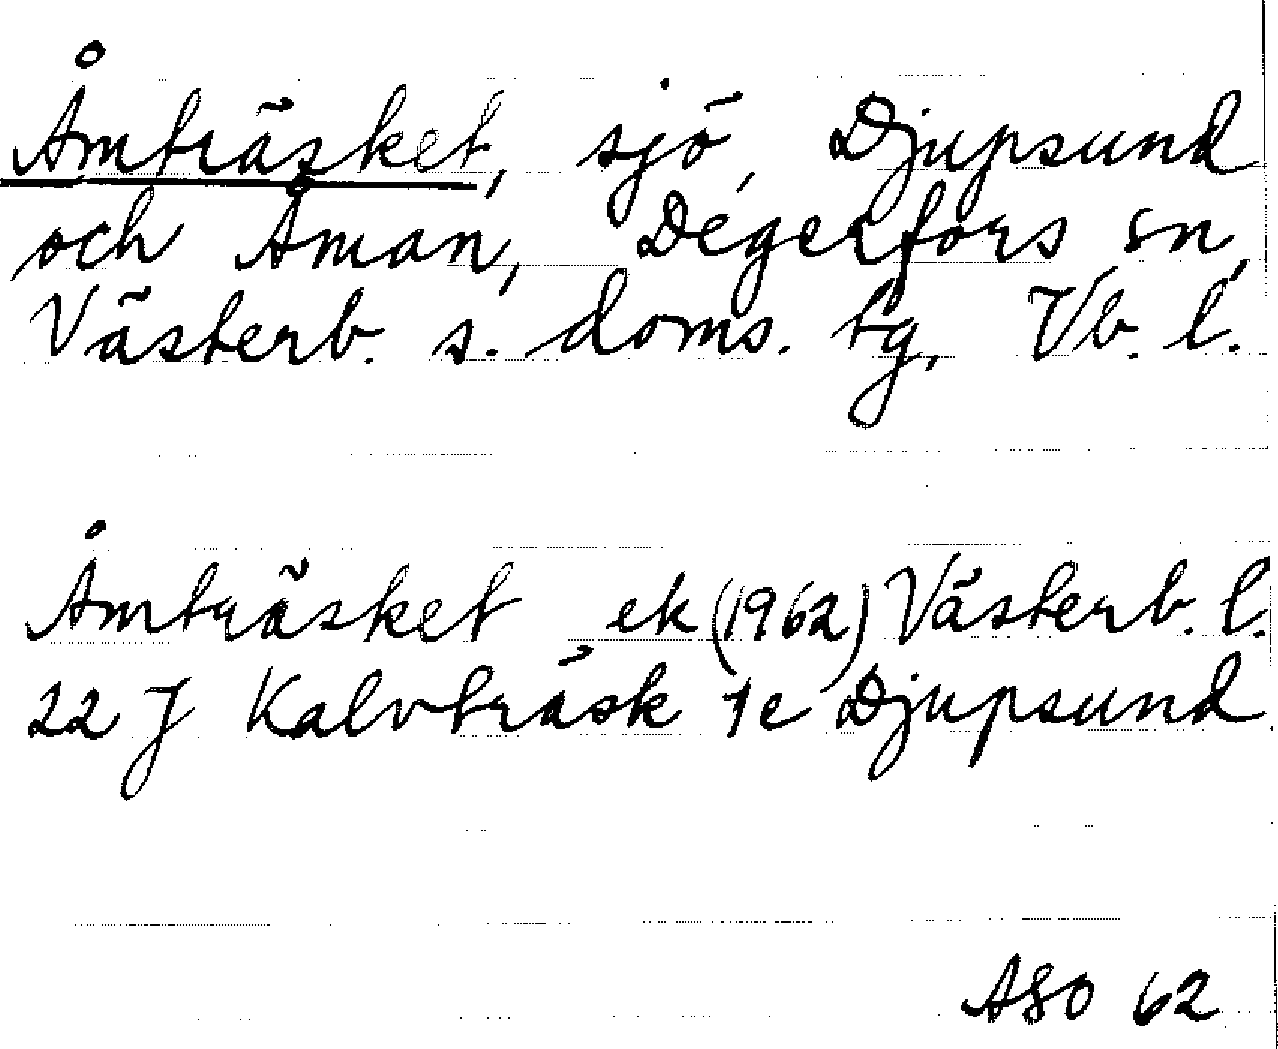 Åmträsket, sjö, Djupsund
och Åman, Degerfors sn,
Västerb. s. doms. tg, Vb. l.
Åmträsket ek (1962) Västerb. l.
22 J Kalvträsk 1e Djupsund.
ASO 62